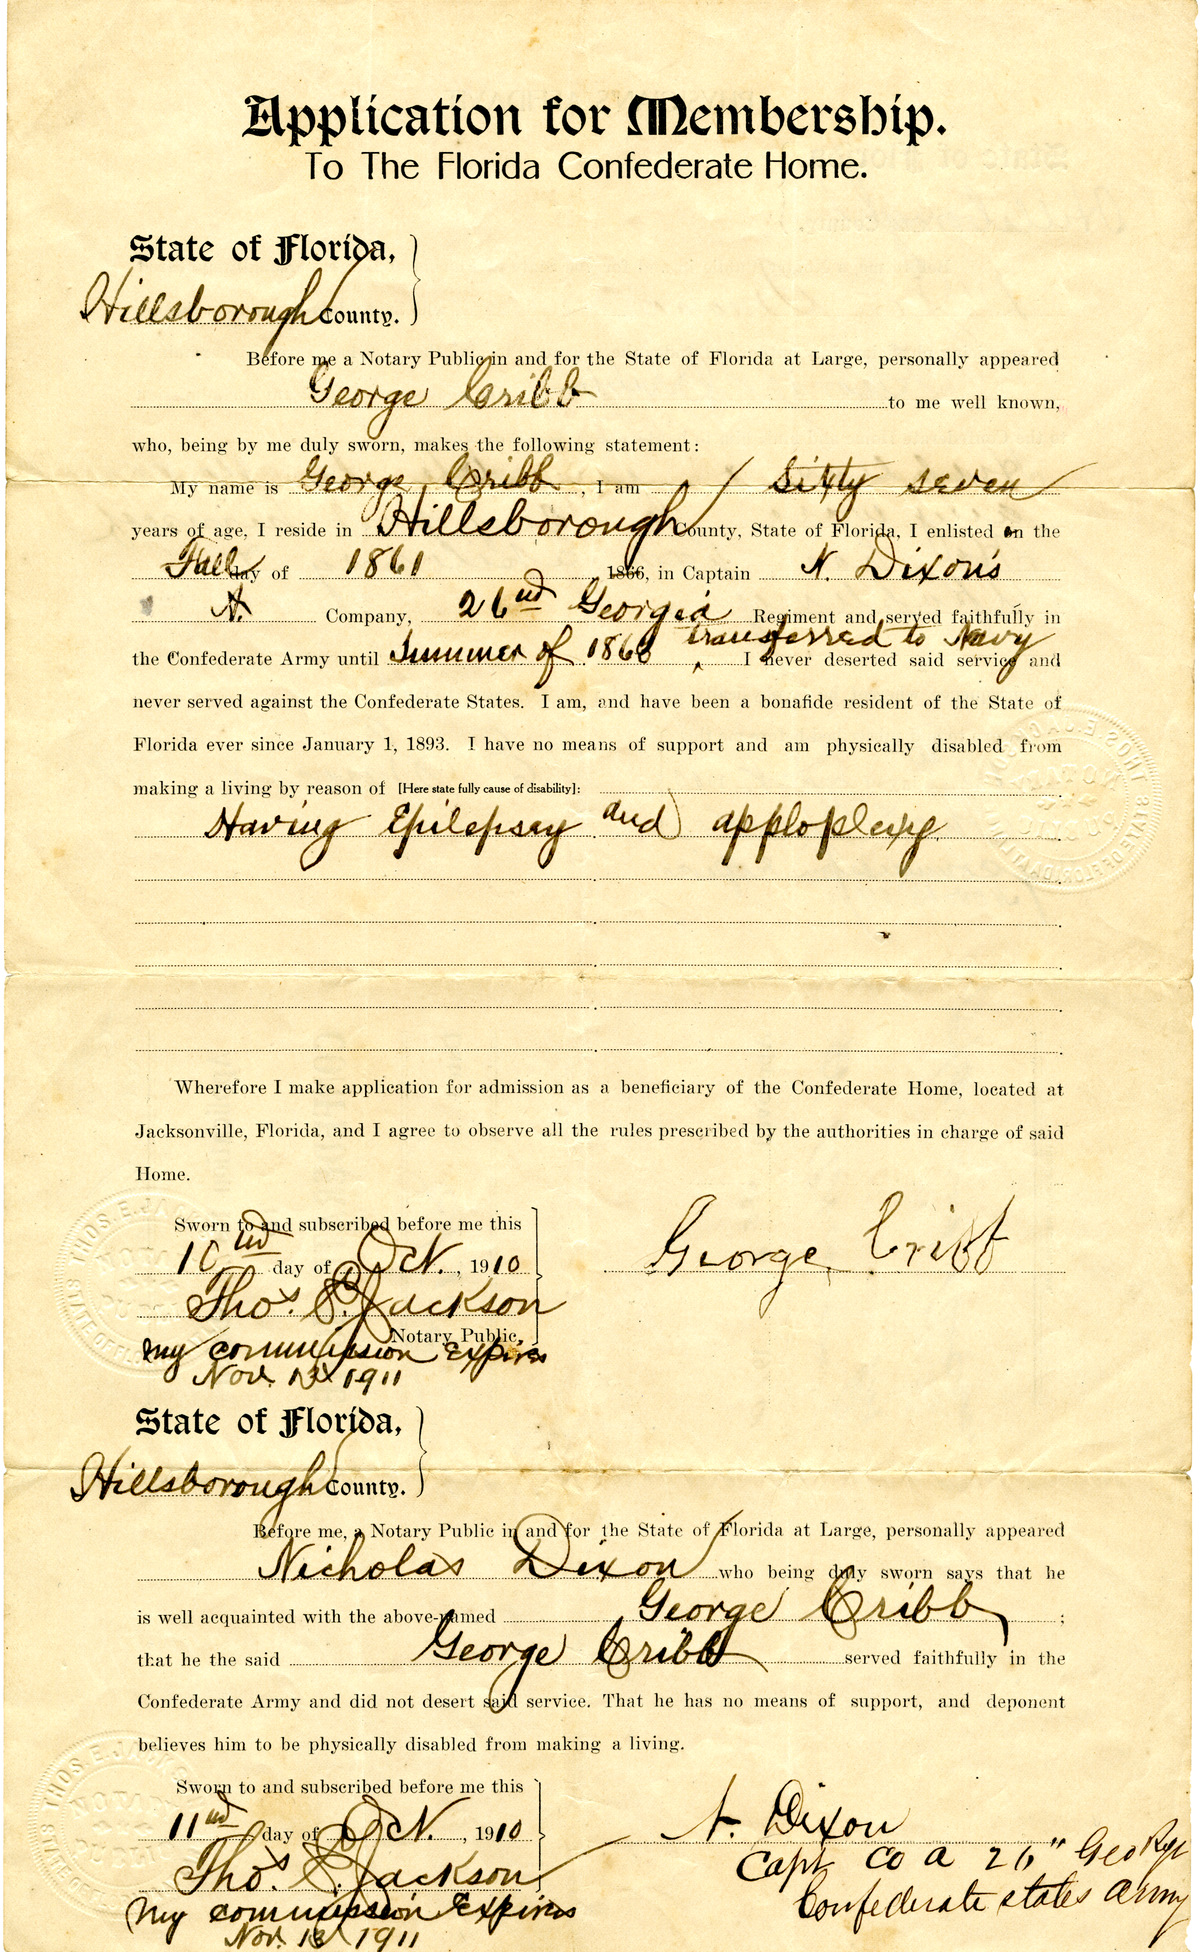 Application for Membership.
To The Florida Confederate Home.
State of Florida,
Hillsborough County.
Before me a Notary Public in and for the State of Florida at Large, personally appeared
George Cribb to me well known,
who, being by me duly sworn, makes the following statement:
My name is George Cribb, I am Sixty seven
years of age, I reside in Hillsborough County, State of Florida, I enlisted on the
Fall day of 1861 1866, in Captain N. Dixon's
A. Company, 26nd Georgia Regiment and served faithfully in
transferred to Navy
the Confederate Army until Summer of I never deserted said service and
never served against the Confederate States. I am, and have been a bonafide resident of the State of
Florida ever since January 1, 1893. I have no means of support and am physically disabled from
making a living by reason of [Here state fully cause of disability]:
Having Epilepsay and apploplexy
Wherefore I make application for admission as a beneficiary of the Confederate Home, located at
Jacksonville, Florida, and I agree to observe all the rules prescribed by the authorities in charge of said
Home.
Sworn to and subscribed before me this
10nd day of Oct., 1910
George Cribb
Thos. E. Jackson
Notary Public.
my commission Expires
Nov. 13 1911
State of Florida,
Hillsborough County.
Before me, a Notary Public in and for the State of Florida at Large, personally appeared
Nicholas Dixon who being duly sworn says that he
is well acquainted with the above-named George Cribb;
that he the said George Cribb served faithfully in the
Confederate Army and did not desert said service. That he has no means of support, and deponent
believes him to be physically disabled from making a living.
Sworn to and subscribed before me this
11nd day of Oct., 1910
N. Dixon
Thos. E. Jackson
Capt Co a 26" Geo Rgt
Confederate states army
My commission Expires
Nov. 13 1911
THOS. E. JACKSON
NOTARY PUBLIC
STATE OF FLORIDA AT LARGE